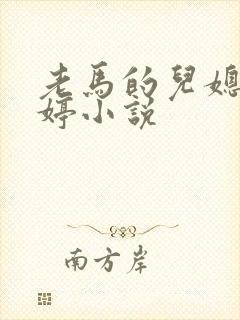 老馬的兒媳
婷小說
南方岸